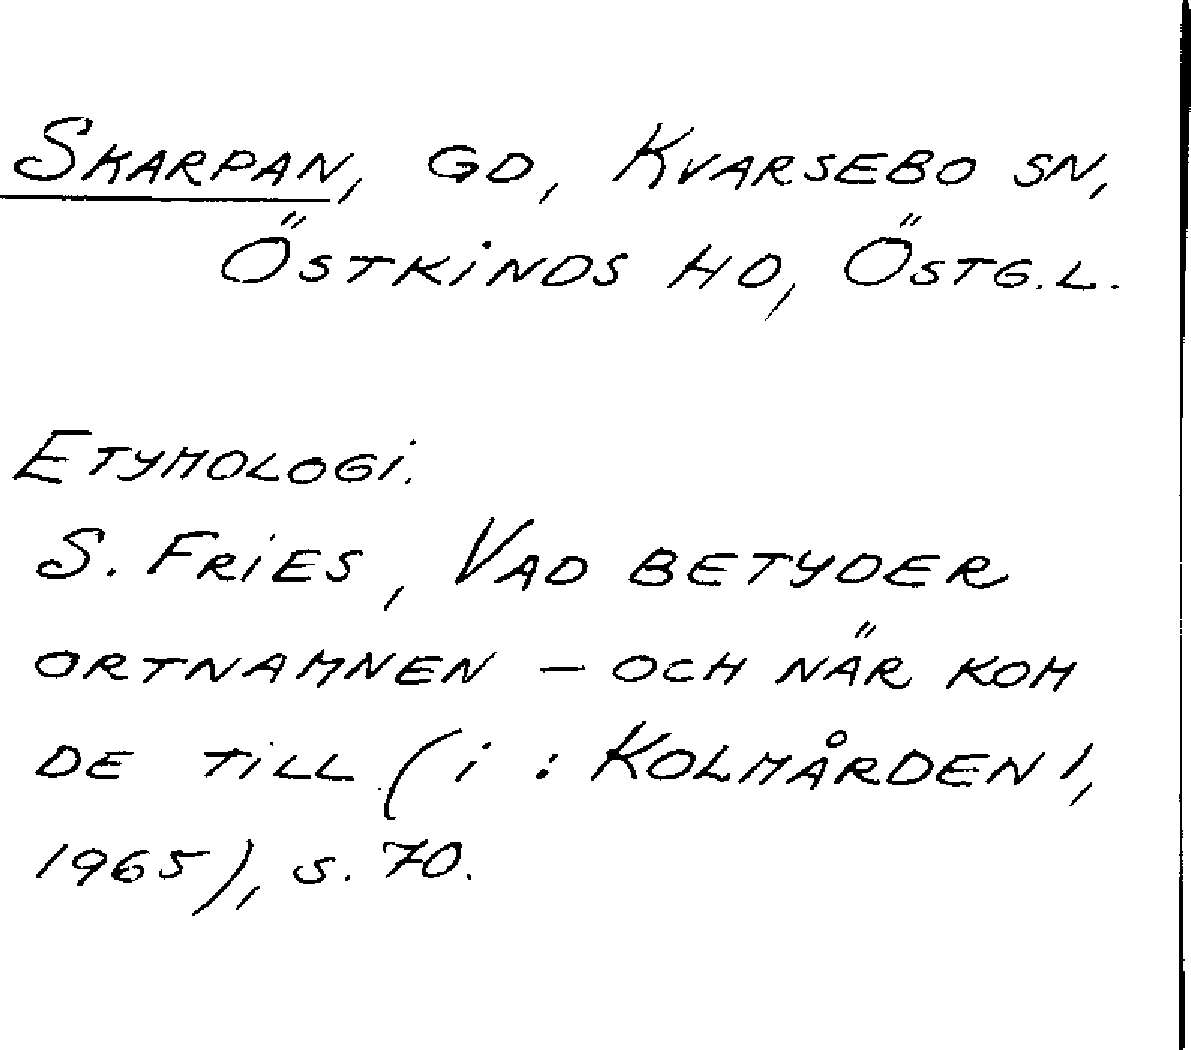 SKARPAN, GD, KVARSEBO SN,
ÖSTKINDS HD, ÖSTG.L.
ETYMOLOGI.
S. FRIES, VAD BETYDER
ORTNAMNEN – OCH NÄR KOM
DE TILL (i : KOLMÅRDEN 1,
1965), s. 70.